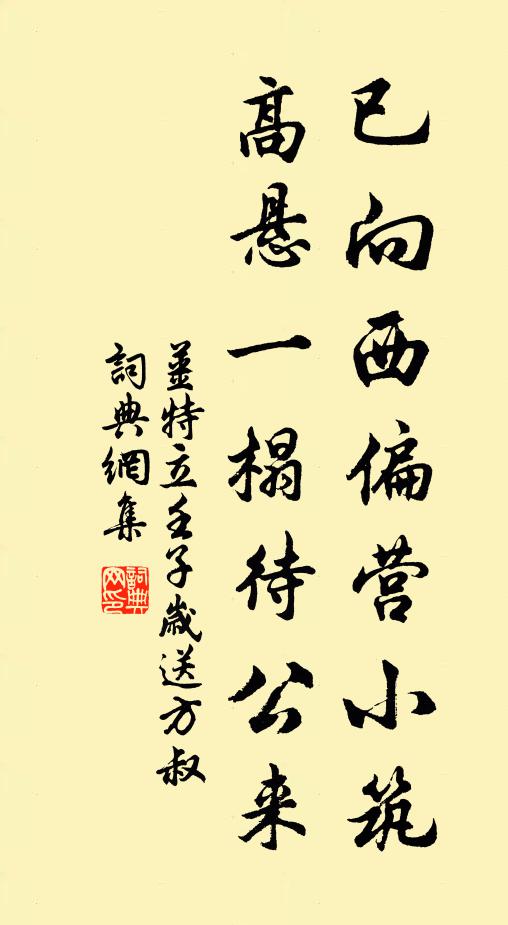 已向西偏营小筑
高悬一榻待公来
姜特立壬子歲送方叔
詞典網集
詞典網印